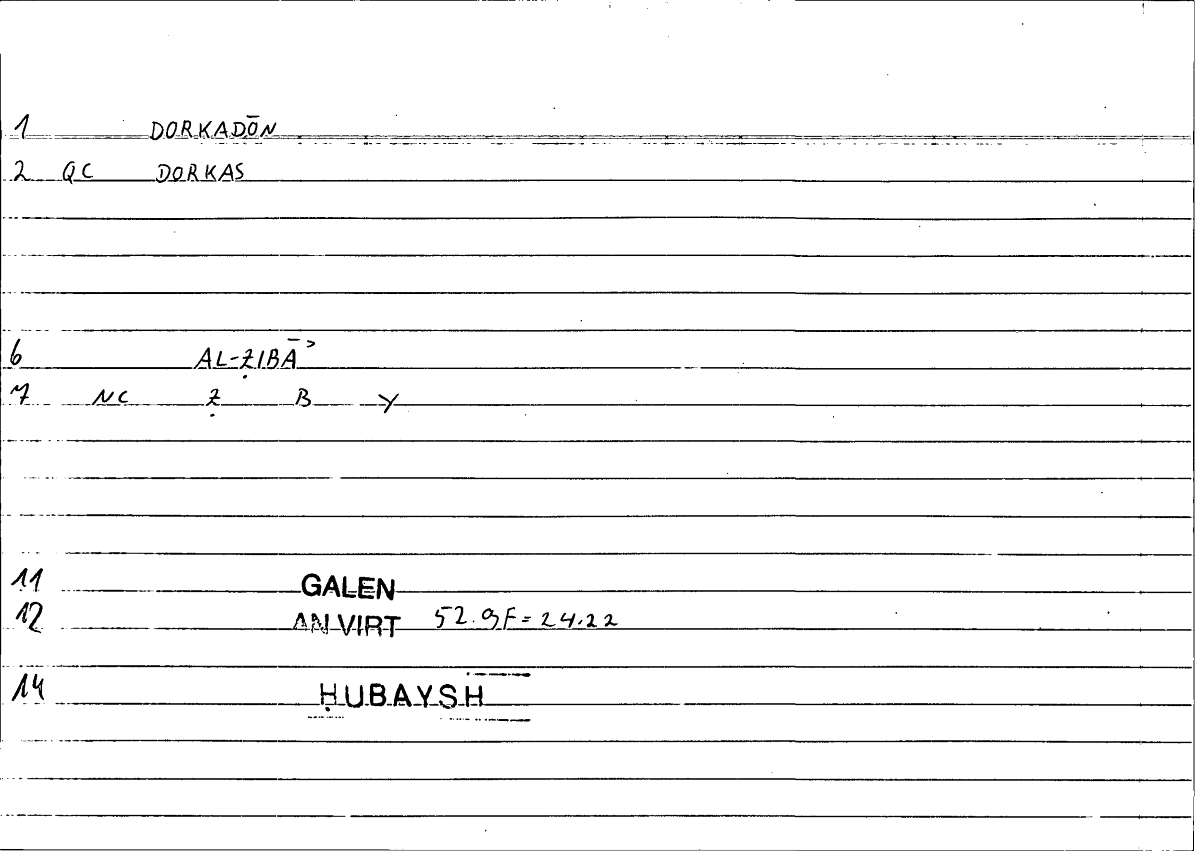 1 DORKADŌN
2 QC DORKAS
6 AL-ẒIBĀʾ
7 NC Ẓ B Y
11 GALEN
12 AN VIRT 52.9F=24.22
14 ḤUBAYSH